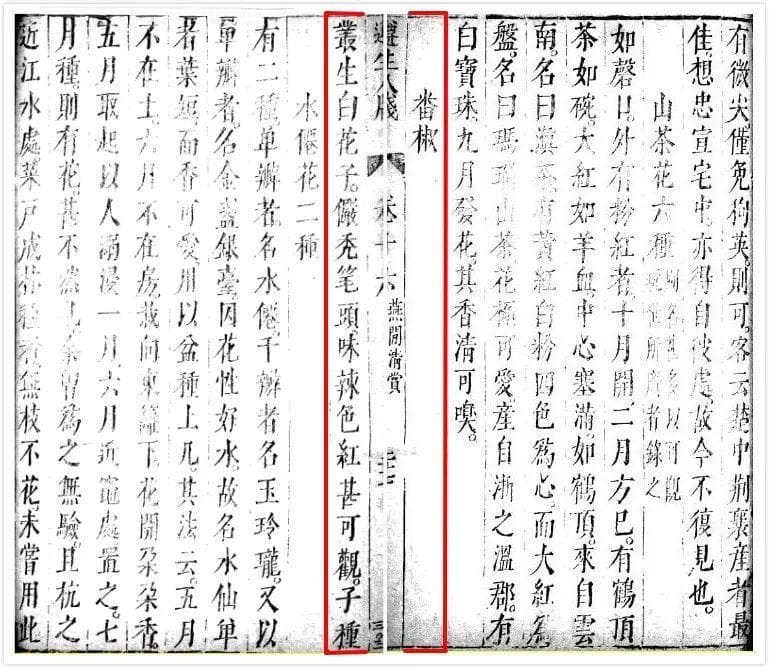 有微尖僅免狗英則可客云楚中荆襄產者最
佳想忠宣宅中亦得自彼處故今不復見也。
山茶花六種
如磬口外有粉紅者十月開二月方巳。有鶴頂
茶如碗大紅如羊血中心塞滿如鶴頂來自雲
南。名曰滇茶有黃紅白粉四色爲心。而大紅爲
盤名曰瑪瑙山茶花極可愛產自浙之溫郡。有
白寶珠九月發花其香清可嗅。
番椒
遵生八牋 卷十六 燕閒清賞
叢生白花子。儼禿笔頭味辣色紅甚可觀。子種
水僊花二種
有二種單瓣者名水僊千瓣者名玉玲瓏又以
單瓣者名金盞銀臺因花性好水。故名水仙單
者葉短而香可愛用以盆種上几其法云五月
不在土六月不在房栽向東籬下花開朶朶香。
五月取起以人溺浸一月六月近竈處置之。七
月種則有花甚不然曾爲之無驗且杭之
近江水處菜戸成者無枝不花未嘗用此